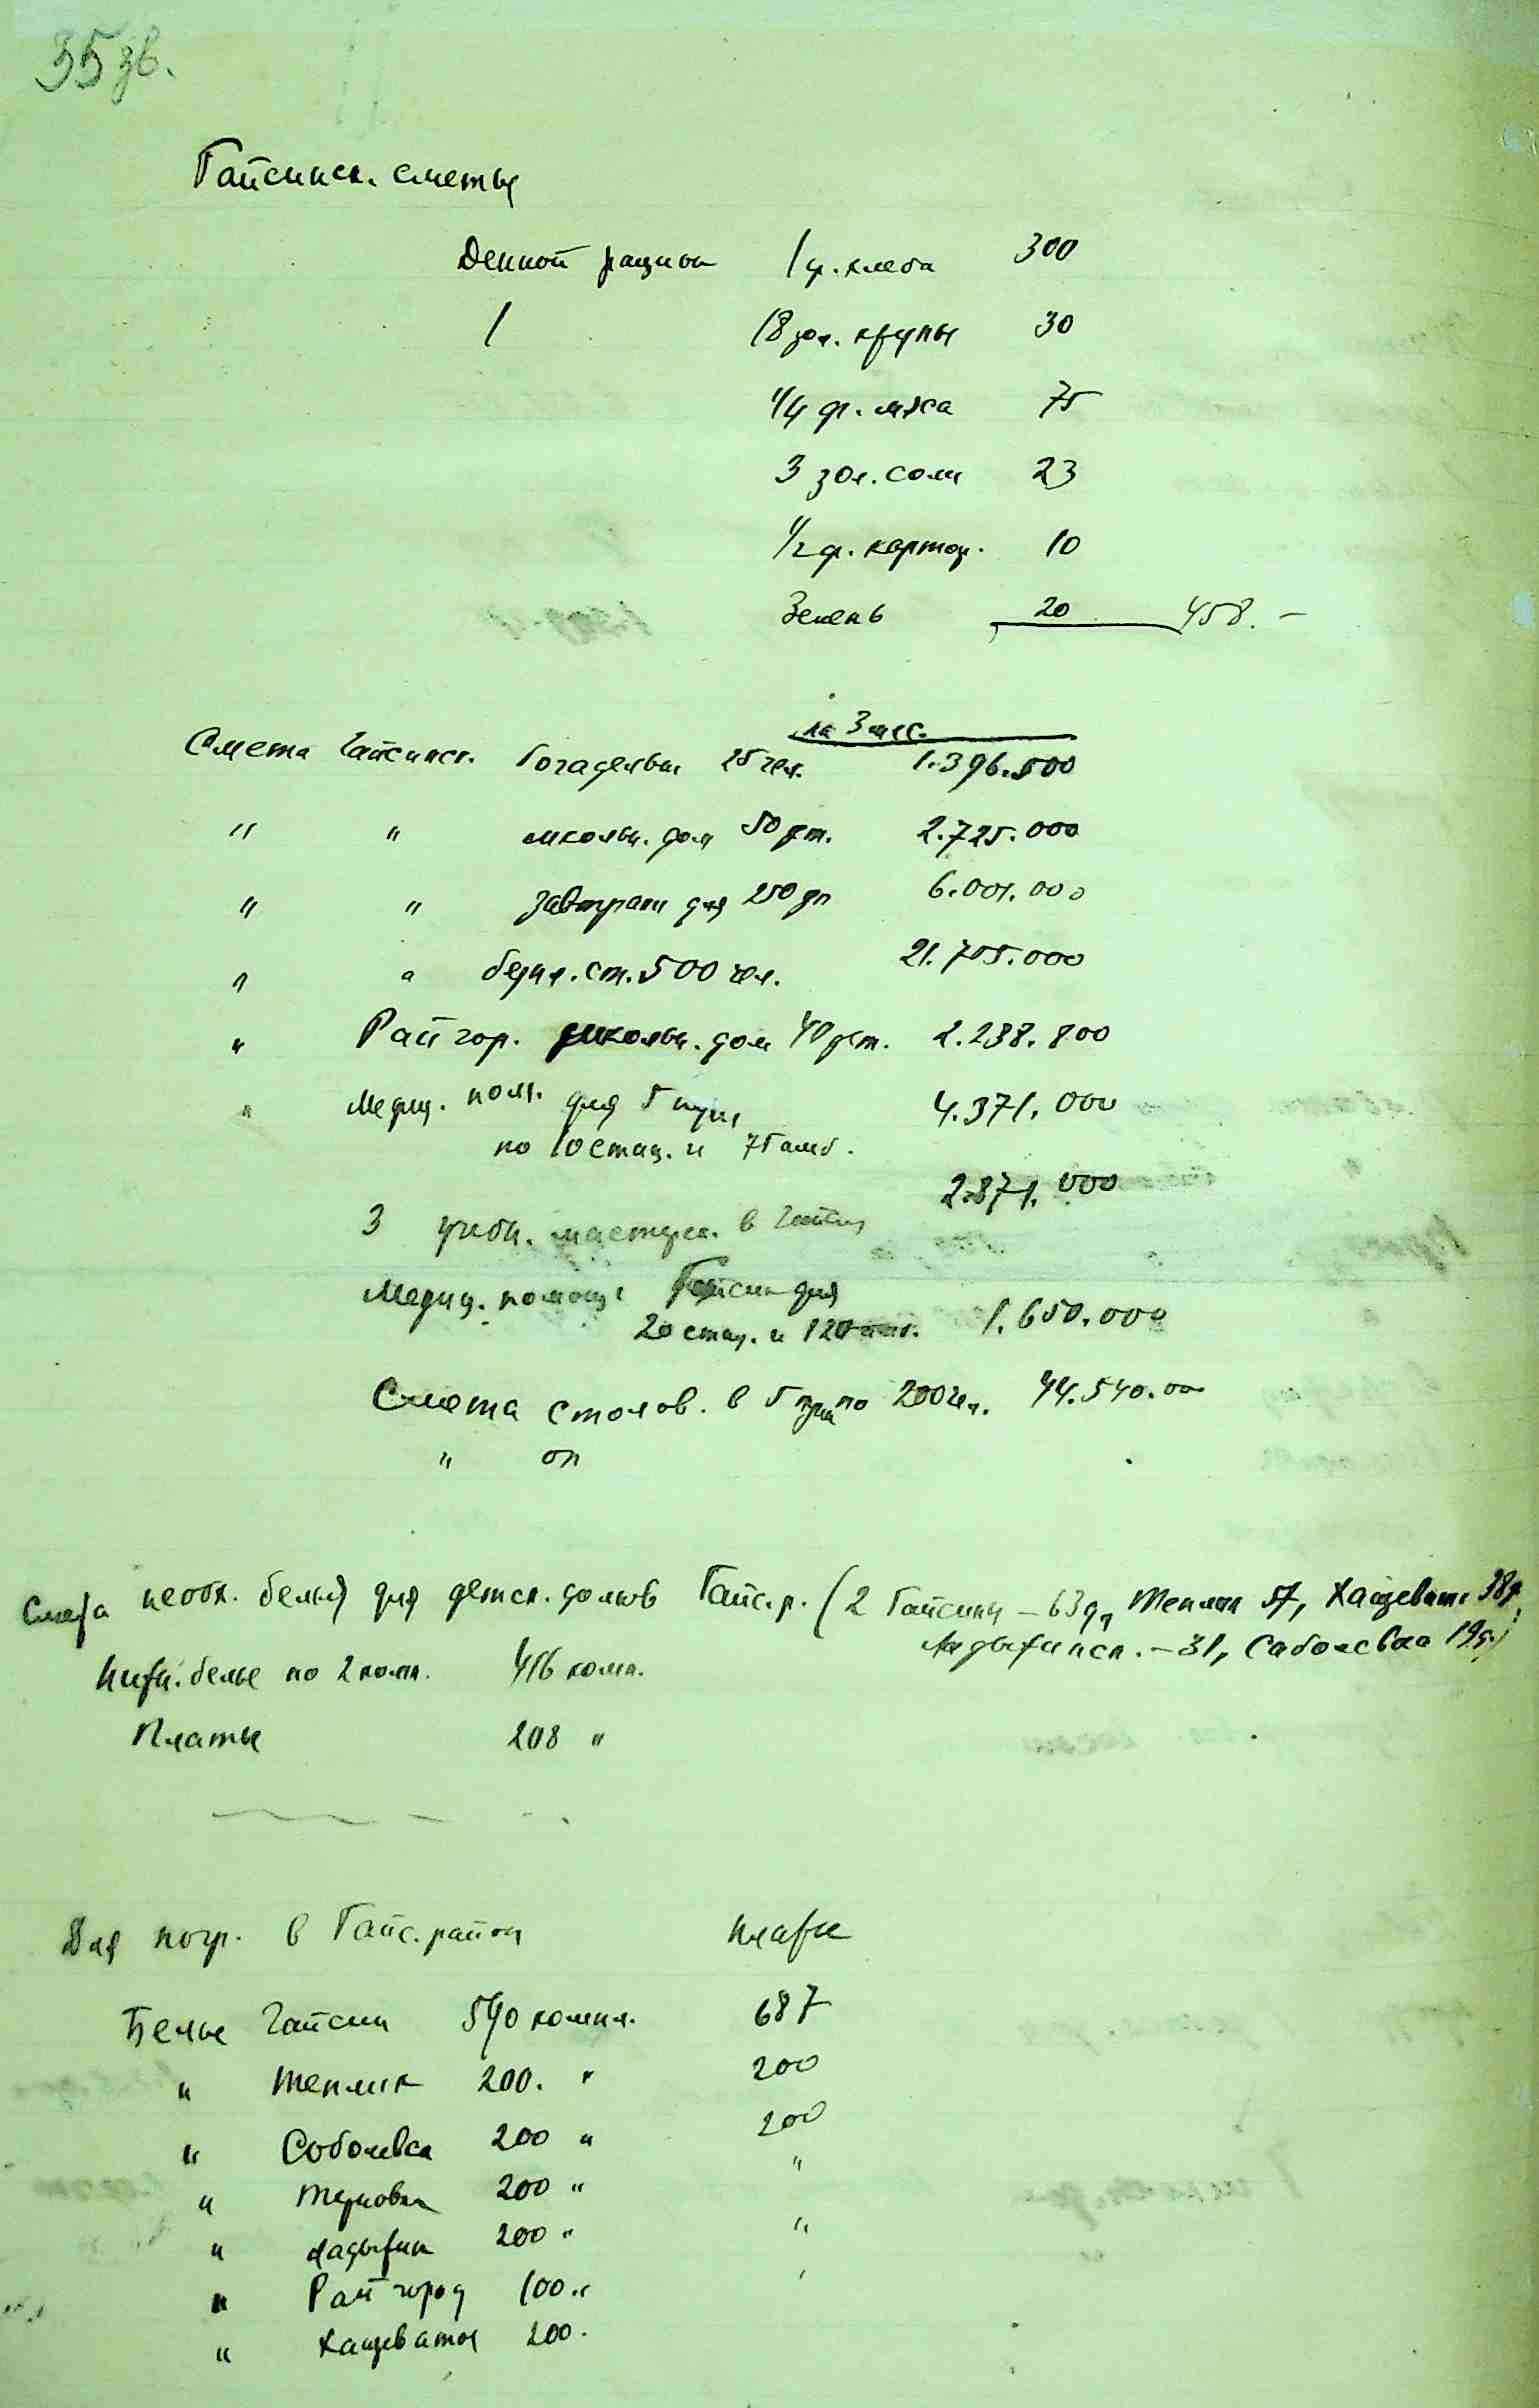 35 зв.
Гайсинск. сметы
Денной рацион 1 ф. хлеба 300
/ 18 зол. крупы 30
1/4 ф. мяса 75
3 зол. соли 23
1/2 ф. картоф. 10
Зелень 20 458. –
на 3 мес.
Смета Гайсинск. богадельни 25 чел. 1.396.500
" " школьн. дом 50 дет. 2.725.000
" " завтраки для 250 дт 6.001.000
" " бедн. ст. 500 чел. 21.705.000
" Райгор. школьн. дом 40 дет. 2.238.800
" Медиц. пом. для 5 пунк 4.371.000
по 10 стац. и 75 амб.
2.871.000
3 учебн. мастерск. в Гайсин
Медиц. помощь Гайсин для
20 стац. и 120 1.650.000
Смета столов. в 5 пун по 200 чел. 44.540.00
" оп
Смета необх. белья для детск. домов Гайс. р. (2 Гайсини – 63 д, Теплик 57, Хащеват. 38 д,
Ладыжинск. – 31, Соболевка 19 д.)
Нижн. белье по 2 комп. 416 комп.
Платье 208 "
Для погр. в Гайс. район Платье
Белье Гайсин 540 компл. 687
" Теплик 200. " 200
" Соболевка 200 " 200
" Терновка 200 " "
" Ладыжин 200 " "
" Райгород 100. "
" Хащеватая 200.